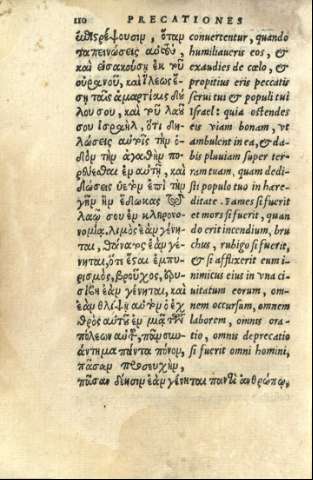 110 PRECATIONES
ἐπιστρέψουσιν, ὅταν
ταπεινώσεις αὐτοὺς,
καὶ εἰσακούσῃ ἐκ τοῦ
οὐρανοῦ, καὶ ἵλεως ἔ-
σῃ ταῖς ἁμαρτίαις δού
λου σου, καὶ τοῦ λαοῦ
σου ἰσραὴλ, ὅτι δη-
λώσεις αὐτοῖς τὴν ὁ-
δὸν τὴν ἀγαθὴν πο-
ρεύεσθαι ἐν αὐτῇ, καὶ
δώσεις ὑετὸν ἐπὶ τὴν
γῆν ἣν ἔδωκας τῷ
λαῷ σου ἐν κληρονο-
νομίᾳ. λιμὸς ἐὰν γένη-
ται, θάνατος ἐὰν γέ-
νηται, ὅτι ἔσαι ἐμπυ-
ρισμὸς, βροῦχος, ἐρυ-
σίβη ἐὰν γένηται, καὶ
ἐὰν θλίψῃ αὐτὸν ὁ ἐχ
θρὸς αὐτοῦ ἐν μιᾷ τῶν
πόλεων αὐτοῦ, πᾶν συν-
άντημα πάντα πόνον,
πᾶσαν προσευχὴν,
πᾶσαν δέησιν ἐὰν γένηται παντὶ ἀνθρώπῳ,
conuertentur, quando
humiliaueris eos, &
exaudies de cælo, &
propitius eris peccatis
serui tui & populi tui
Israel: quia ostendes
eis viam bonam, vt
ambulent in ea, & da-
bis pluuiam super ter-
ram tuam, quam dedi-
sti populo tuo in hære-
ditate. Fames si fuerit
et mors si fuerit, quan
do erit incendium, bru
chus, rubigo si fuerit,
& si afflixerit eum i-
nimicus eius in vna ci-
uitatum eorum, om-
nem occursum, omnem
laborem, omnis ora-
tio, omnis deprecatio
si fuerit omni homini,